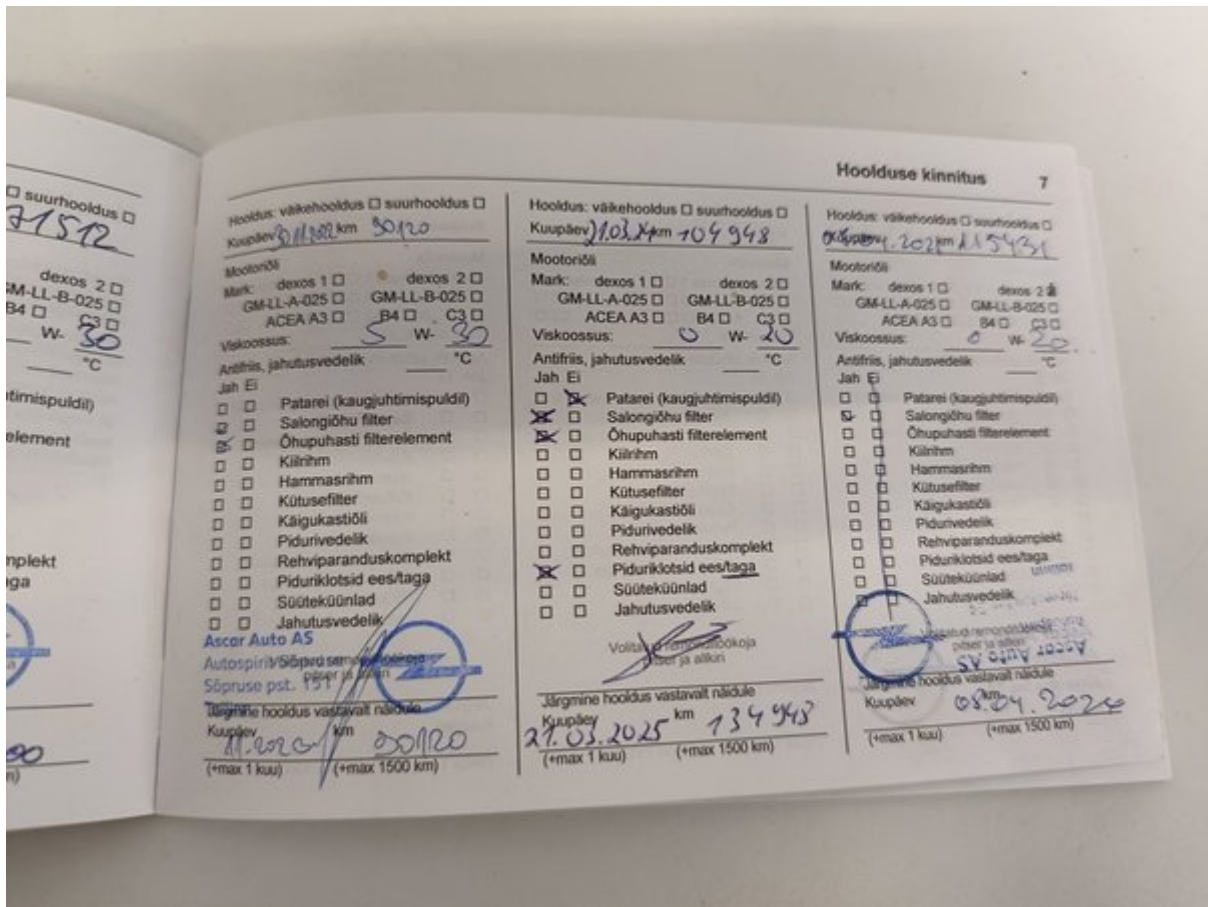 suurhooldus
71512
dexos 2
GM-LL-B-025
B4 C3
W- 30
°C
element
Hoolduse kinnitus 7
Hooldus: väikehooldus suurhooldus
Kuupäev 30.11.2022 km 90120
Mootoriõli
Mark: dexos 1 dexos 2
GM-LL-A-025 GM-LL-B-025
ACEA A3 B4 C3
Viskoossus: 5 W- 30
Antifriis, jahutusvedelik °C
Jah Ei
Patarei (kaugjuhtimispuldil)
Salongiõhu filter
Õhupuhasti filterelement
Kiilrihm
Hammasrihm
Kütusefilter
Käigukastiõli
Pidurivedelik
Rehviparanduskomplekt
Piduriklotsid ees/taga
Süüteküünlad
Jahutusvedelik
Ascar Auto AS
Sõpruse pst. 151
Järgmine hooldus vastavalt näidule
Kuupäev km
(+max 1 kuu) (+max 1500 km)
Hooldus: väikehooldus suurhooldus
Kuupäev 21.03.24 km 104 948
Mootoriõli
Mark: dexos 1 dexos 2
GM-LL-A-025 GM-LL-B-025
ACEA A3 B4 C3
Viskoossus: 0 W- 20
Antifriis, jahutusvedelik °C
Jah Ei
Patarei (kaugjuhtimispuldil)
Salongiõhu filter
Õhupuhasti filterelement
Kiilrihm
Hammasrihm
Kütusefilter
Käigukastiõli
Pidurivedelik
Rehviparanduskomplekt
Piduriklotsid ees/taga
Süüteküünlad
Jahutusvedelik
Volitatud remonditöökoja
pitser ja allkiri
Järgmine hooldus vastavalt näidule
Kuupäev km
21.03.2025 134 948
(+max 1 kuu) (+max 1500 km)
Hooldus: väikehooldus suurhooldus
km 115431
Mootoriõli
Mark: dexos 1 dexos 2
GM-LL-A-025 GM-LL-B-025
ACEA A3 B4 C3
Viskoossus: 0 W- 20
Antifriis, jahutusvedelik °C
Jah Ei
Patarei (kaugjuhtimispuldil)
Salongiõhu filter
Õhupuhasti filterelement
Kiilrihm
Hammasrihm
Kütusefilter
Käigukastiõli
Pidurivedelik
Rehviparanduskomplekt
Piduriklotsid ees/taga
Süüteküünlad
Jahutusvedelik
remonditöökoja
pitser ja allkiri
Ascar Auto AS
Järgmine hooldus vastavalt näidule
Kuupäev km
(+max 1 kuu) (+max 1500 km)